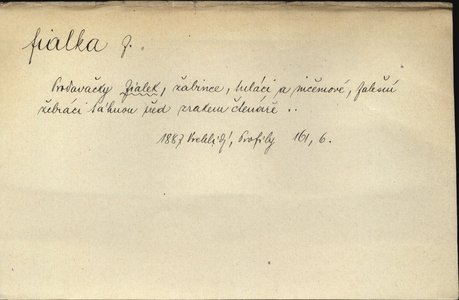 fialka f.
Prodavačky fialek, žabince, tuláci a ničemové, falešní
žebráci táhnou před zrakem čtenáře ..
1887 Vrchlický, Profily 161, 6.